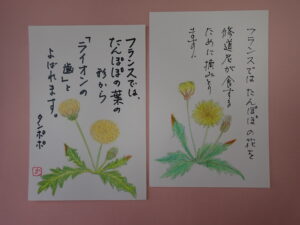 フランスでは、
たんぽぽの葉の
形から
「ライオンの
歯」と
よばれます。
タンポポ
フランスでは たんぽぽの花を
修道者が食する
ために摘みとり
ます。